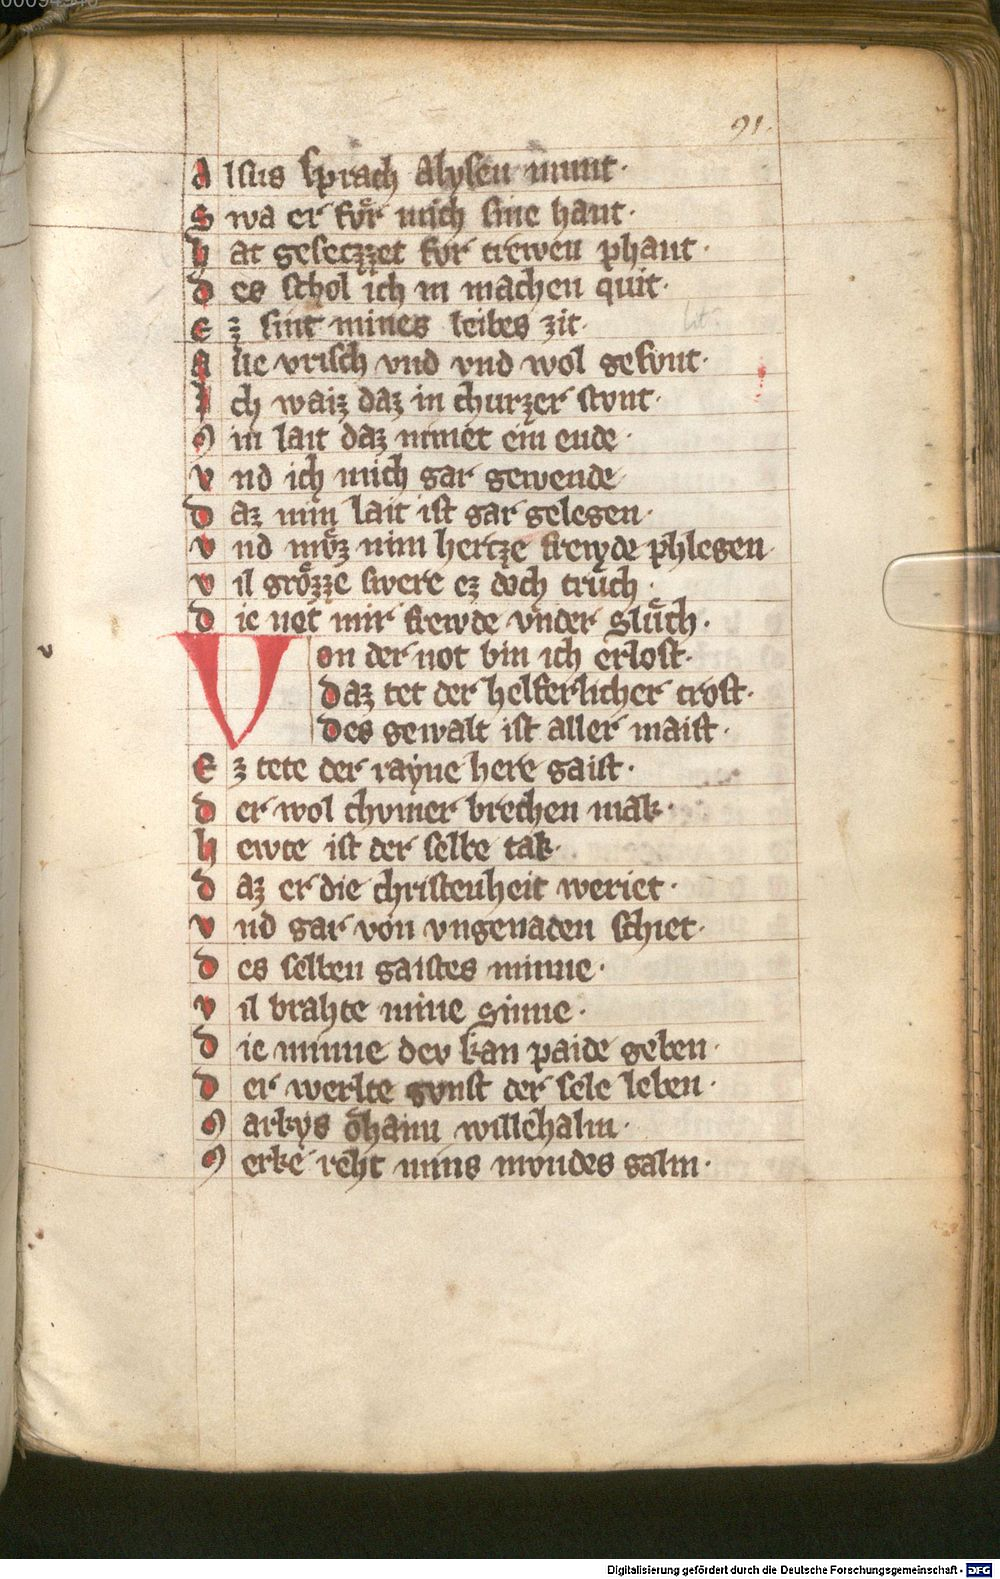 00094946
91.
A lsus sprach Alysen munt·
S wa er fvͦr mich sine hant·
h at geseczzet fvr trewen phant·
d es schol ich in machen quit·
e z sint mines leibes zit·
A lle vrisch vnd vnd wol gesvnt·
I ch waiz daz in churzer stvnt·
M in lait daz nimet ein ende·
v nd ich mich gar gewende
d az min lait ist gar gelegen·
v nd mvͦz nim hertze frewde phlegen
v il grozze swere ez doch truͦch·
d ie not mir frewde vnder sluͦch·
V on der not bin ich erlost·
daz tet der helferlicher trost·
des gewalt ist aller maist·
E z tete der rayne here gaist·
d er wol chvmer brechen mak·
h ewte ist der selbe tak·
d az er die christenheit weriet·
v nd gar von vngenaden schiet·
d es selben gaistes minne·
v il brahte mine sinne·
d ie minne dev kan paide geben·
d er werlte gvnst der sele leben·
M arkys Johann willehalm·
M erke reht mins mvndes galm·
v
Digitalisierung gefördert durch die Deutsche Forschungsgemeinschaft - DFG